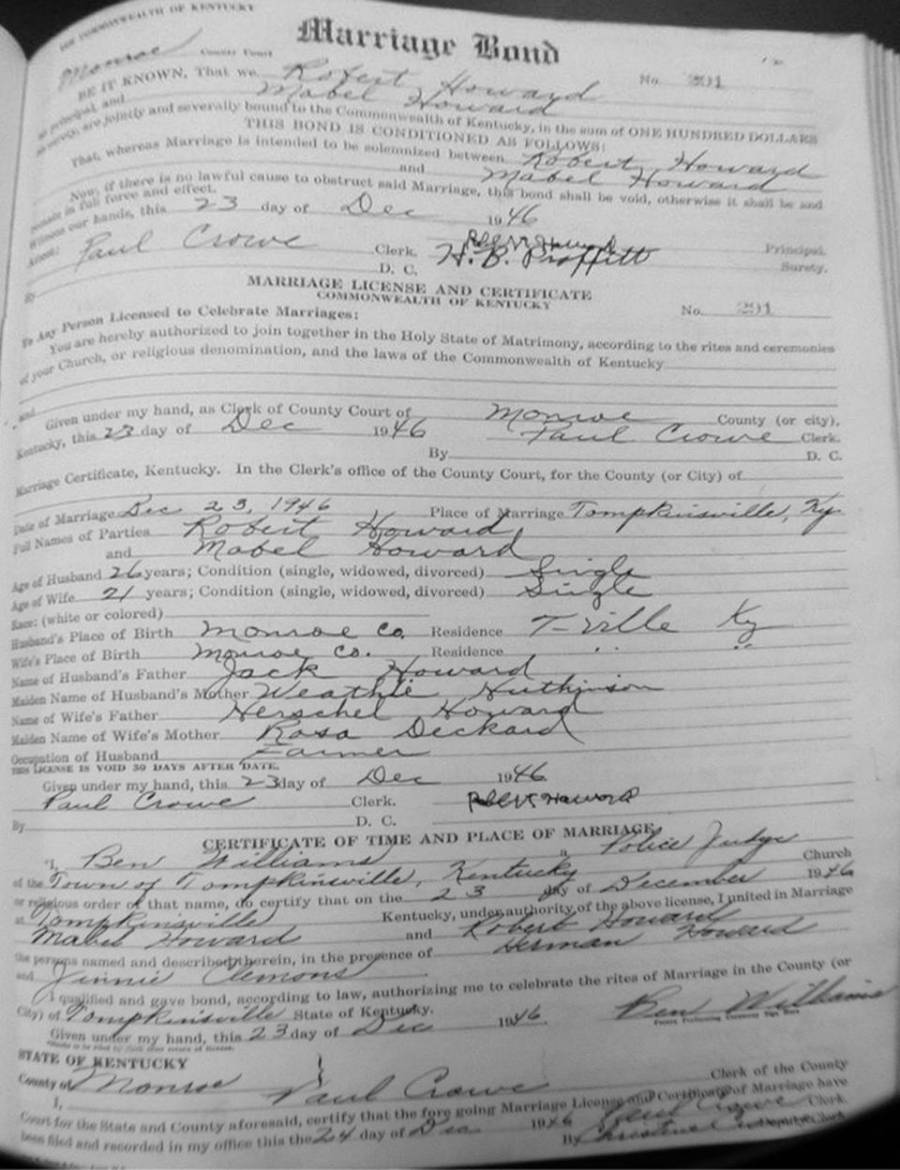 THE COMMONWEALTH OF KENTUCKY
Marriage Bond
Monroe County Court
No. 291
BE IT KNOWN, That we, Robert Howard
as principal, and Mabel Howard
as surety, are jointly and severally bound to the Commonwealth of Kentucky, in the sum of ONE HUNDRED DOLLARS
THIS BOND IS CONDITIONED AS FOLLOWS:
That, whereas Marriage is intended to be solemnized between Robert Howard
and Mabel Howard
Now, if there is no lawful cause to obstruct said Marriage, this bond shall be void, otherwise it shall be and
remain in full force and effect.
Witness our hands, this 23 day of Dec 1946
Attest: Paul Crowe Clerk. Howard Principal.
D. C. H. B. Proffitt Surety.
By
MARRIAGE LICENSE AND CERTIFICATE
COMMONWEALTH OF KENTUCKY
No. 291
To Any Person Licensed to Celebrate Marriages:
You are hereby authorized to join together in the Holy State of Matrimony, according to the rites and ceremonies
of your Church, or religious denomination, and the laws of the Commonwealth of Kentucky
and
Given under my hand, as Clerk of County Court of Monroe County (or city),
Kentucky, this 23 day of Dec 1946 Paul Crowe Clerk.
By D. C.
Marriage Certificate, Kentucky. In the Clerk's office of the County Court, for the County (or City) of
Date of Marriage Dec 23, 1946 Place of Marriage Tompkinsville, Ky.
Full Names of Parties Robert Howard
and Mabel Howard
Age of Husband 26 years; Condition (single, widowed, divorced) Single
Age of Wife 21 years; Condition (single, widowed, divorced) Single
Race: (white or colored)
Husband's Place of Birth Monroe Co. Residence T-ville Ky
Wife's Place of Birth Monroe Co. Residence " "
Name of Husband's Father Jack Howard
Maiden Name of Husband's Mother Weathie Huthinson
Name of Wife's Father Herschel Howard
Maiden Name of Wife's Mother Rosa Deckard
Occupation of Husband Farmer
THIS LICENSE IS VOID 30 DAYS AFTER DATE.
Given under my hand, this 23 day of Dec 1946
Paul Crowe Clerk. Howard
By D. C.
CERTIFICATE OF TIME AND PLACE OF MARRIAGE
"I, Ben Williams a Police Judge Church
of the Town of Tompkinsville, Kentucky
or religious order of that name, do certify that on the 23 day of December 1946
at Tompkinsville Kentucky, under authority of the above license, I united in Marriage
Mabel Howard and Robert Howard
the persons named and described therein, in the presence of Herman Howard
and Jinnie Clemons
I qualified and gave bond, according to law, authorizing me to celebrate the rites of Marriage in the County (or
City) of Tompkinsville State of Kentucky.
Given under my hand, this 23 day of Dec 1946 Ben Williams
STATE OF KENTUCKY
County of Monroe
I, Paul Crowe Clerk of the County
Court for the State and County aforesaid, certify that the fore going Marriage License and Certificate of Marriage have
been filed and recorded in my office this the 24 day of Dec 1946 Paul Crowe Clerk.
By Christine Deputy Clerk